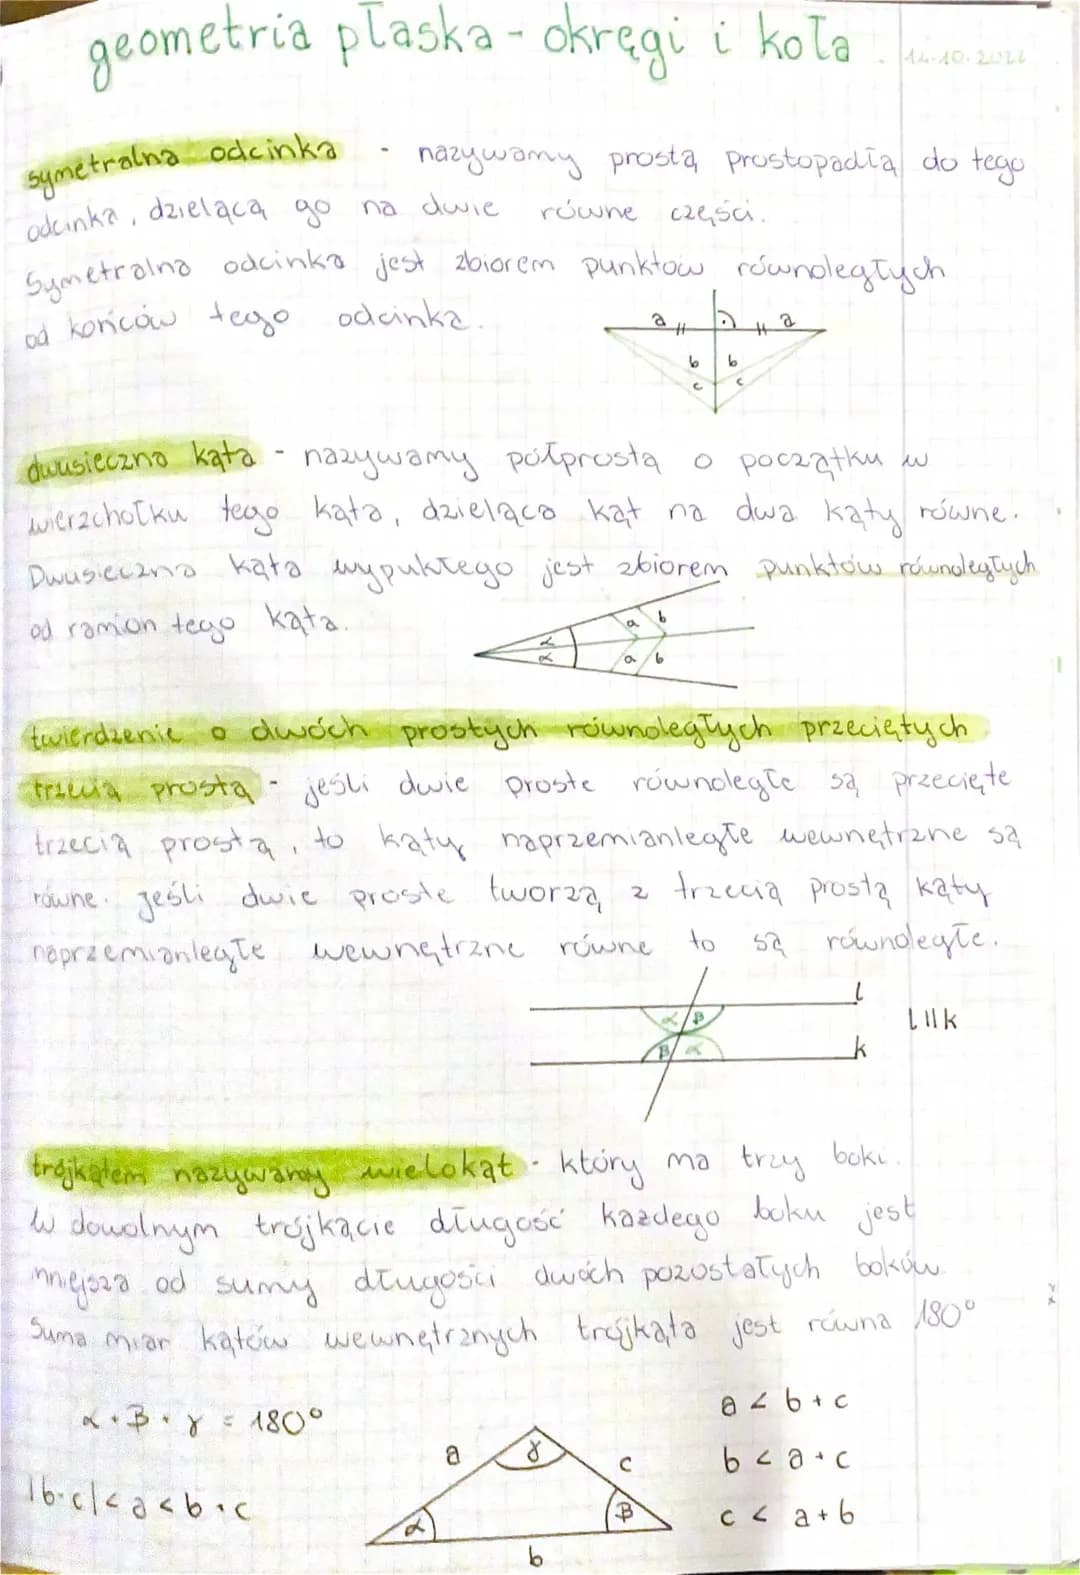 geometria płaska - okręgi i koła
symetralna odcinka - nazywamy prostą prostopadłą do tego
odcinka, dzielącą go na dwie równe części.
Symetralna odcinka jest zbiorem punktów równoległych
od końców tego odcinka.
a a
b b
c c
dwusieczna kąta - nazywamy półprostą o początku w
wierzchołku tego kąta, dzieląca kąt na dwa kąty równe.
Dwusieczna kąta wypukłego jest zbiorem punktów równoległych
od ramion tego kąta.
α a b
α a b
twierdzenie o dwóch prostych równoległych przeciętych
trzecią prostą - jeśli dwie proste równoległe są przecięte
trzecią prostą, to kąty naprzemianległe wewnętrzne są
równe. jeśli dwie proste tworzą z trzecią prostą kąty
naprzemianległe wewnętrzne równe to są równoległe.
l
α β
l || k
β α
k
trójkątem nazywamy wielokąt - który ma trzy boki.
W dowolnym trójkącie długość każdego boku jest
mniejsza od sumy długości dwóch pozostałych boków
Suma miar kątów wewnętrznych trójkąta jest równa 180°
α + β + γ = 180°
|b-c| < a < b + c
a γ c
α β
b
a < b + c
b < a + c
c < a + b